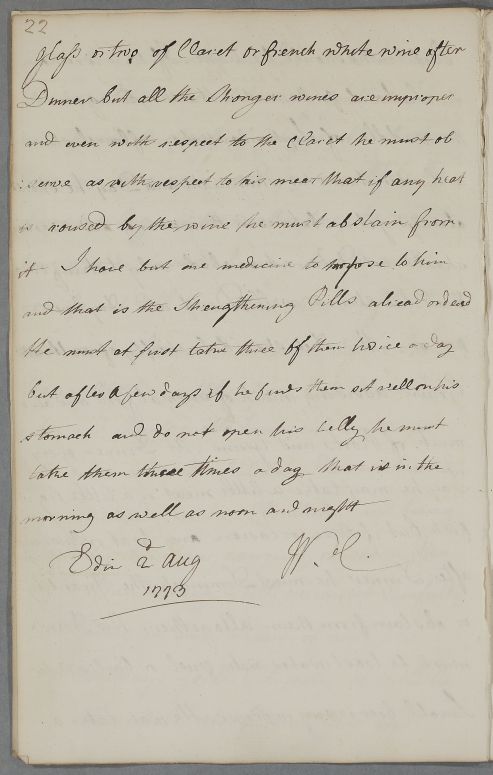 22
glass or two of Claret or french white wine after
Dinner but all the stronger wines are improper
and even with respect to the Claret he must ob
:serve as with respect to his meat that if any heat
is roused by the wine he must abstain from
it I have but one medicine to propose to him
and that is the Strengthening Pills alread ordered
He must at first take three of them twice a day
but after a few days if he finds them sit well on his
stomach and do not open his belly he must
take them three times a day that is in the
morning as well as noon and night
Edin 2d Aug W. C.
1773